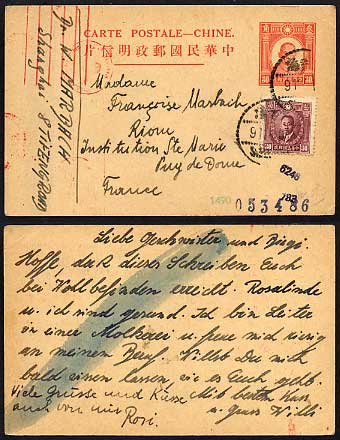 CARTE POSTALE—CHINE.
片信明政郵國民華中
Dr. W. MARBACH
Shanghai,
Road
Madame
Françoise Marbach
Riom
Institution Ste Marie
Puy de Dome
France
30
30
91
1490
053486
6248
783
Liebe Geschwister und
Hoffe, daß dieses Schreiben Euch
bei Wohlbefinden erreicht. Rosalinde
u. ich sind gesund. Ich bin Leiter
in einer Molkerei u. freue mich riesig
an meinem Beruf. Wollet Du mich
bald einen lassen, wie es Euch geht.
Viele Grüsse und Küsse Mit besten Küssen
auch von mir u. Gruss Willi
Rosi.